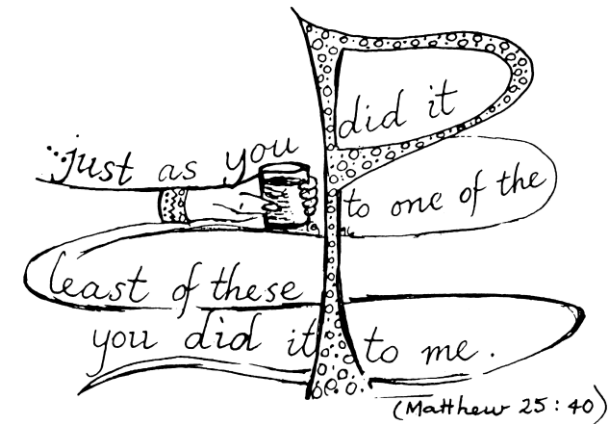 ...just as you did it
to one of the
least of these
you did it to me.
(Matthew 25:40)